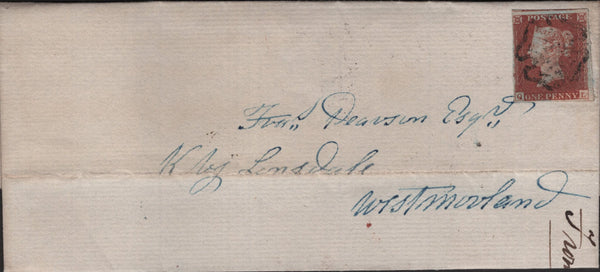 POSTAGE
ONE PENNY
Fras. Pearson Esqr.
Kby Lonsdale
Westmorland